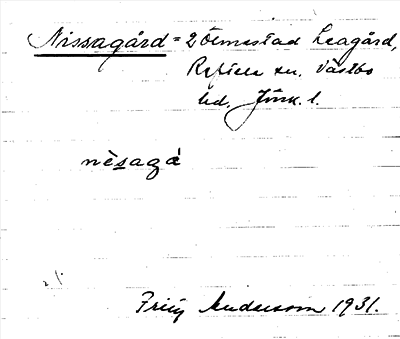 Nissagård = 2 Ölmestad Leagård,
Reftele sn. Västbo
hd. Jönk. l.
nèsagá
Fritz Anderson 1931.